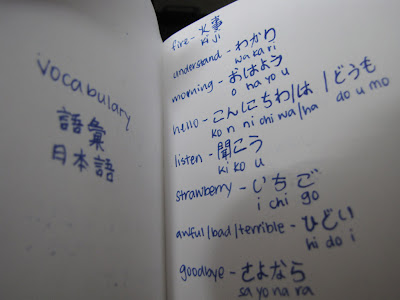 vocabulary
語彙
日本語
fire - 火事
ki ji
understand - わかり
wa ka ri
morning - おはよう
o ha yo u
hello - こんにちわ/は/どうも
ko n ni chi wa/ha do u mo
listen - 聞こう
ki ko u
strawberry - いちご
i chi go
awful/bad/terrible - ひどい
hi do i
goodbye - さよなら
sa yo na ra